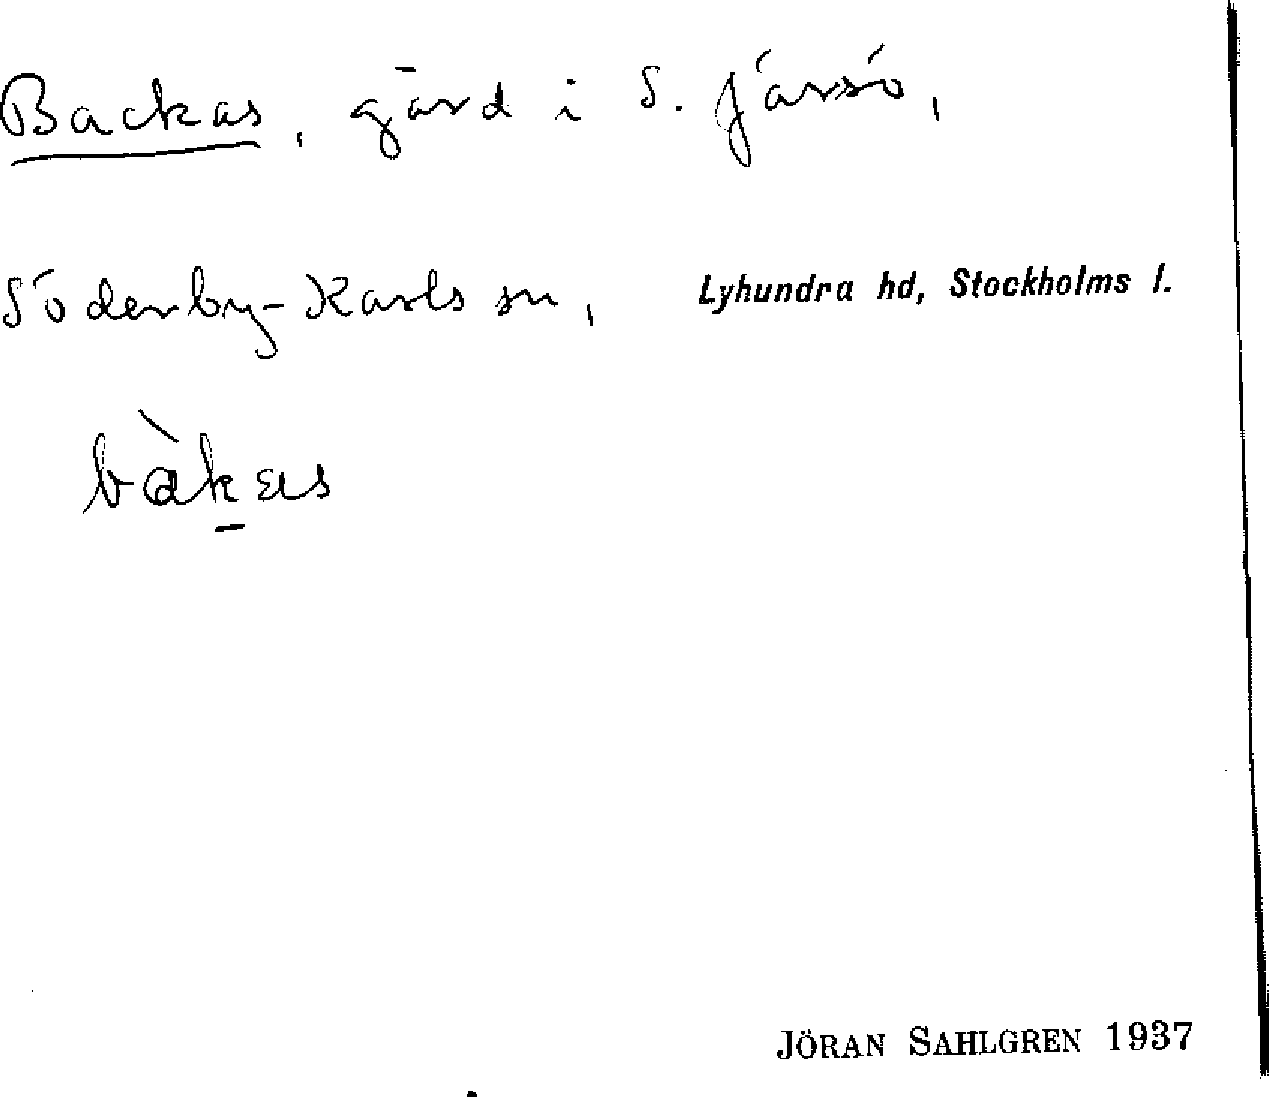 Backas, gård i S. Järsö,
Söderby-Karls sn, Lyhundra hd, Stockholms l.
bàk̲as
JÖRAN SAHLGREN 1937